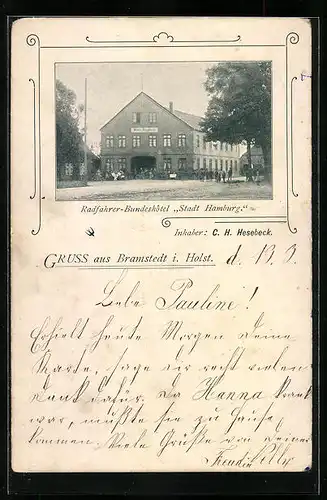 Radfahrer-Bundeshôtel „Stadt Hamburg."
Inhaber: C. H. Hesebeck.
GRUSS aus Bramstedt i. Holst. d. 13. 9.
Liebe Pauline!
Erhielt heute Morgen deine
Karte, sage dir recht vielen
Dank dafür. Da Hanna krank
war, mußte sie zu Hause
kommen. Viele Grüße von deiner
Freundin